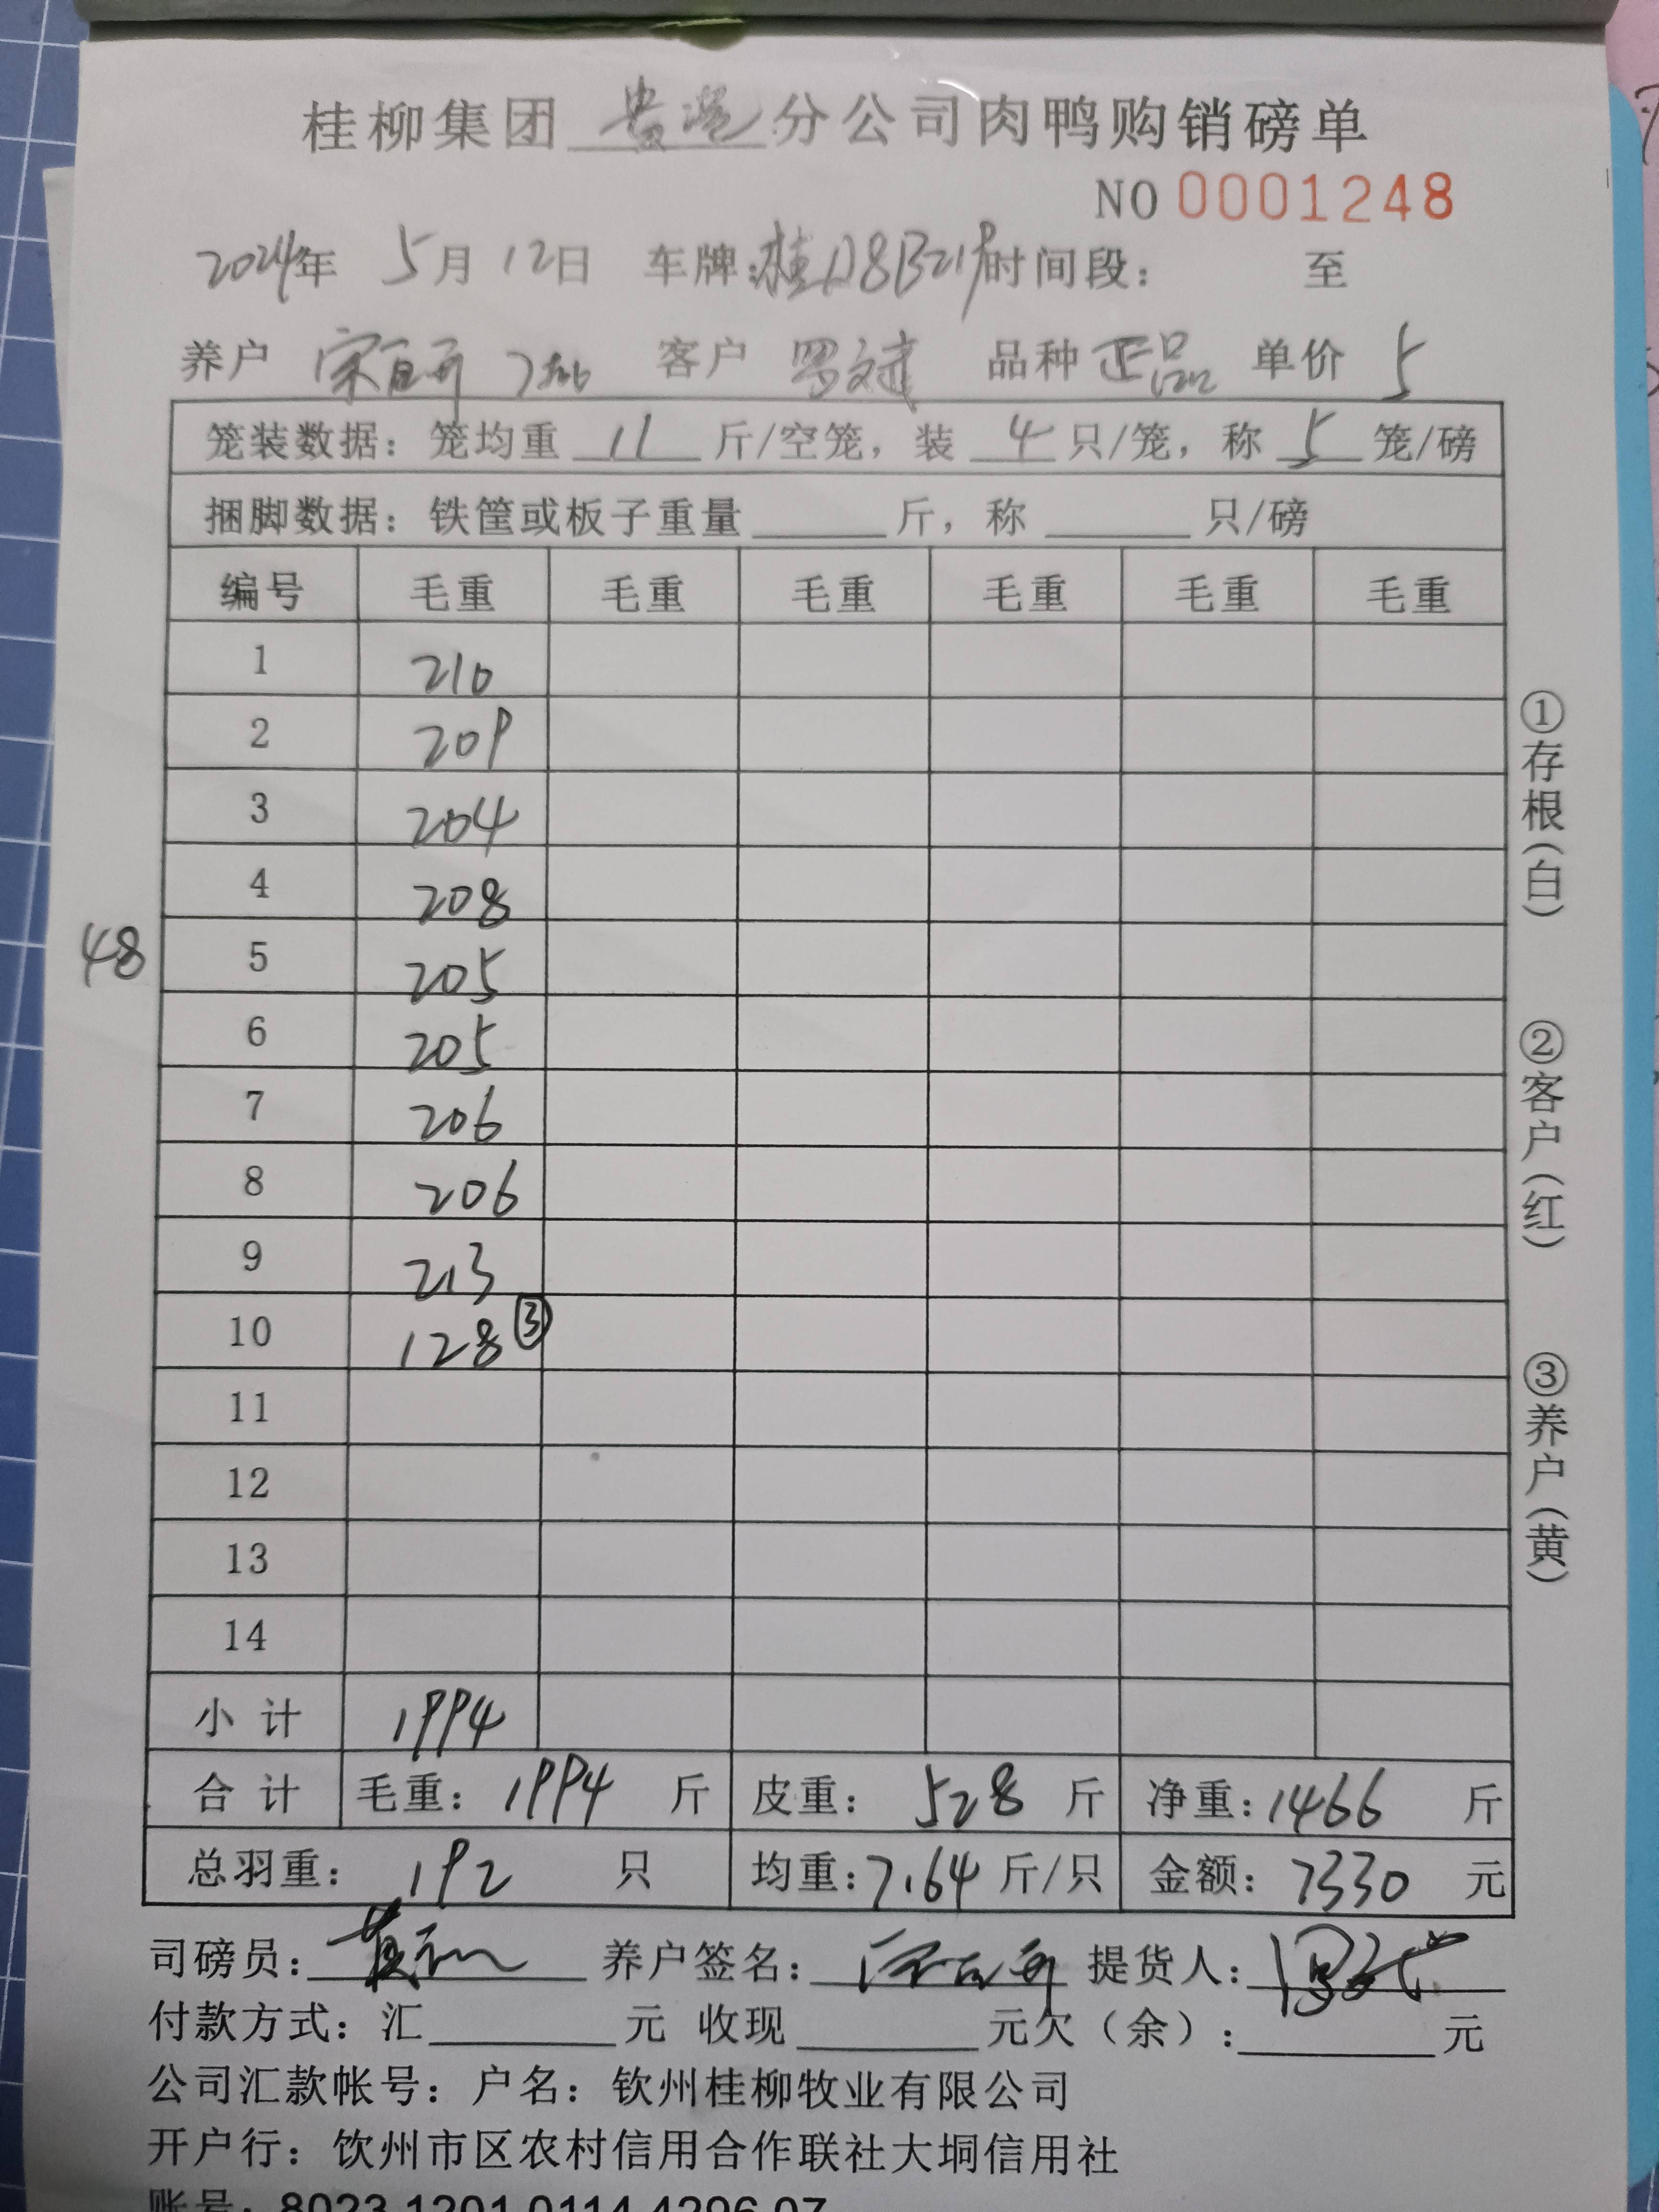 桂柳集团 贵港 分公司肉鸭购销磅单
NO 0001248
2024年 5月 12日 车牌:桂 时间段: 至
养户 客户 罗文建 品种 正品 单价 5
笼装数据: 笼均重 11 斤/空笼, 装 4 只/笼, 称 5 笼/磅
捆脚数据: 铁筐或板子重量 斤, 称 只/磅
编号 毛重 毛重 毛重 毛重 毛重 毛重
1 210
2 209
3 204
4 208
48
5 205
6 205
7 206
8 206
9 213
10 128 ③
11
12
13
14
小计 1994
合计 毛重: 1994 斤 皮重: 528 斤 净重: 1466 斤
总羽重: 192 只 均重: 7.64 斤/只 金额: 7330 元
司磅员: 养户签名: 提货人:
付款方式: 汇 元 收现 元欠(余): 元
公司汇款帐号: 户名: 钦州桂柳牧业有限公司
开户行: 钦州市区农村信用合作联社大垌信用社
账号: 8023 1201 0114 4296 07
①存根(白)
②客户(红)
③养户(黄)